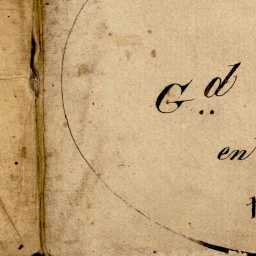 Gd
en